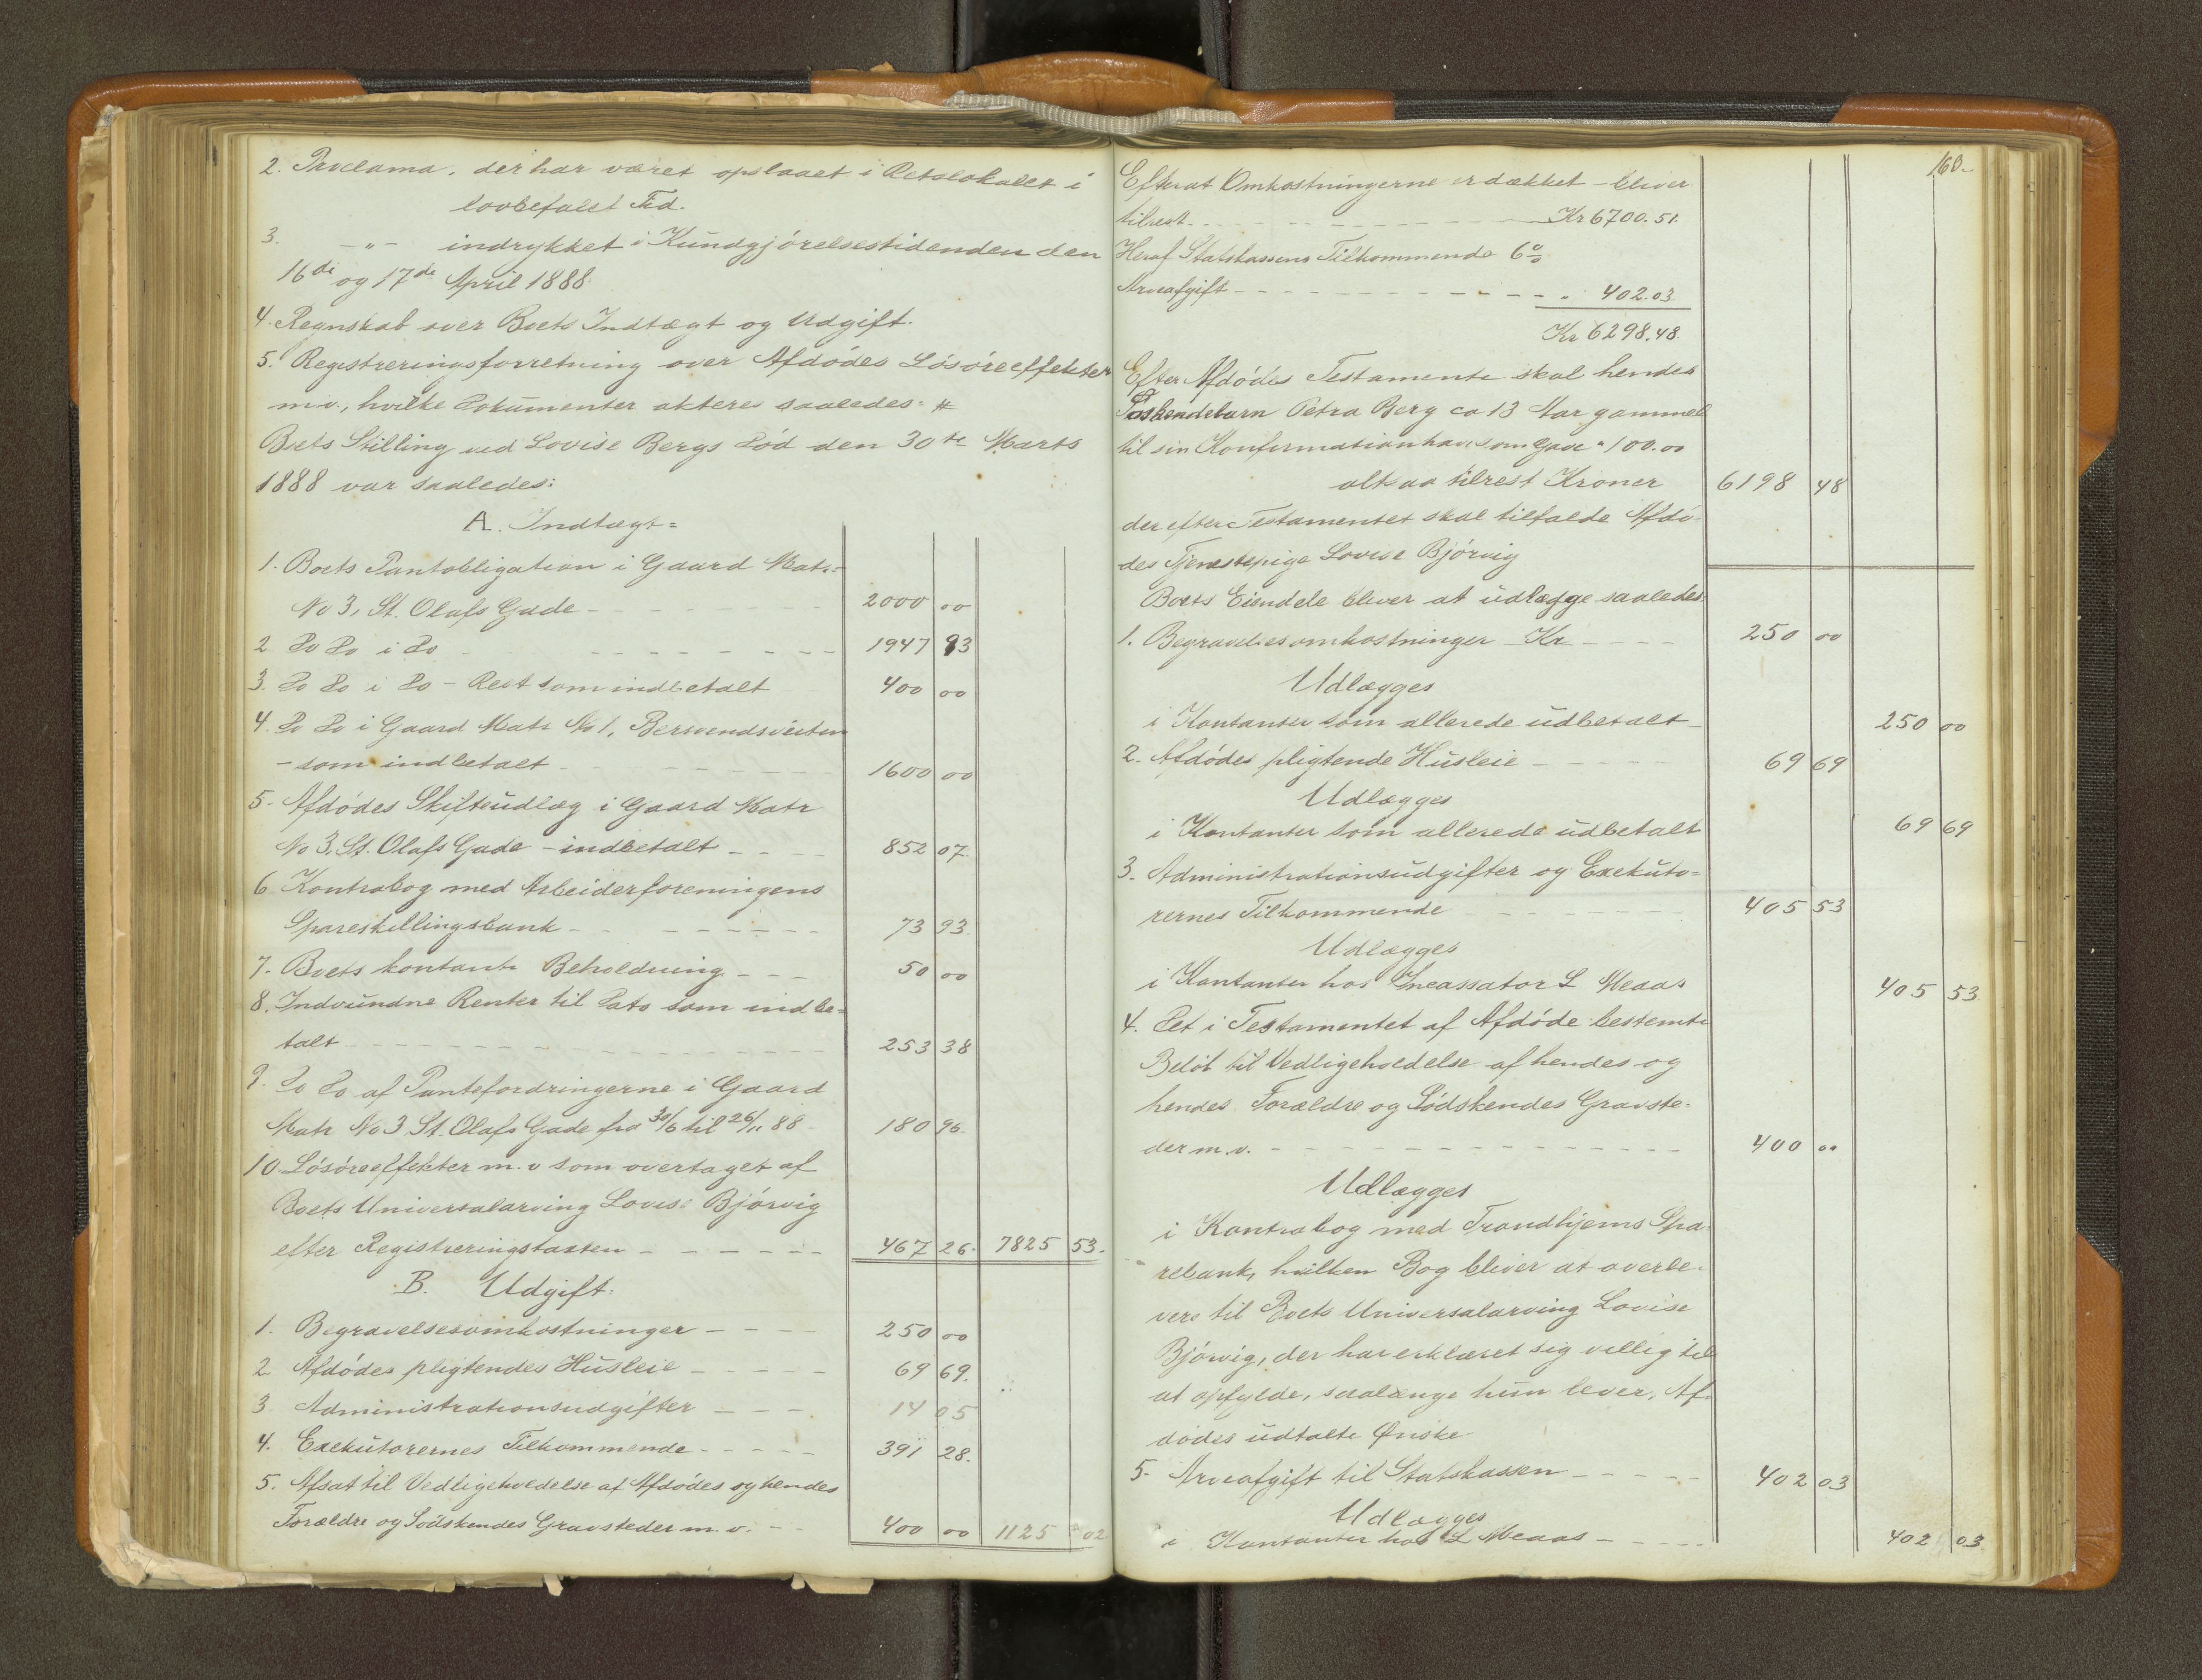 2. Proclama, der har været opslaaet i Retslokalet i
lovbefalet Tid.
3. -"- indrykket i Kundgjörelsestidenden den
16de og 17de April 1888.
4. Regnskab over Boets Indtægt og Udgift.
5. Registreringsforretning over Afdödes Lösöreeffekter
m.v., hvilke Dokumenter akteres saaledes:
Boets Stilling ved Lovise Bergs Död den 30te Marts
1888 var saaledes:
A. Indtægt=
1. Boets Pantobligation i Gaard Matr-
No 3, St. Olafs Gade - 2000 00
2. Do Do i Do - 1947 93
3. Do Do i Do - Rest som indbetalt 400 00
4. Do Do i Gaard Matr No 1,
- som indbetalt 1600 00
5. Afdödes Skifteudlæg i Gaard Matr
No 3, St. Olafs Gade - indbetalt - 852 07.
6. Kontrabog med Arbeiderforeningens
Spareskillingsbank - 73 93.
7. Boets kontante Beholdning - 50 00
8. Indvundne Renter til Dato som indbe=
talt - 253 38
9. Do Do af Pantefordringerne i Gaard
Matr No 3 St. Olafs Gade fra 30/6 til 26/11 88 - 180 96
10. Lösöreeffekter m.v som overtaget af
Boets Universalarving Lovise Bjórvig
efter Registreringstaxten - 467 26. 7825 53.
B. Udgift.
1. Begravelsesomkostninger - 250 00
2. Afdödes pligtendes Husleie - 69 69.
3. Administrationsudgifter - 14 05
4. Exekutorernes Tilkommende - 391 28.
5. Afsat til Vedligeholdelse af Afdödes og hendes
Forældre og Södskendes Gravsteder m.v. - 400 00 1125 02
160.
Efterat Omkostningerne er dækket - bliver
tilrest - Kr 6700.51.
Heraf Statskassens Tilkommende 6%
Arveafgift - " 402.03
Kr 6298.48.
Efter Afdödes Testamente skal hendes
Petra Berg ca 13 Aar gammel
til sin Konfirmation have som Gave " 100.00
altsaa tilrest Kroner 6198 48
der efter Testamentet skal tilfalde Afdö-
des Tjenestepige Lovise Bjórvig
Boets Eiendele bliver at udlægge saaledes:
1. Begravelsesomkostninger Kr - 250 00
Udlægges
i Kontanter som allerede udbetalt - 250 00
2. Afdödes pligtende Husleie - 69 69
Udlægges
i Kontanter som allerede udbetalt 69 69
3. Administrationsudgifter og Exekuto=
rernes Tilkommende - 405 53
Udlægges
i Kontanter hos Incassator L Meaas 405 53
4. Det i Testamentet af Afdöde bestemte
Belöb til Vedligeholdelse af hendes og
hendes Forældre og Södskendes Gravste-
der m.v. - 400 00
Udlægges
i Kontrabog med Trondhjems Spa-
rebank, hvilken Bog bliver at overle-
vere til Boets Universalarving Lovise
Bjórvig, der har erklæret sig villig til
at opfylde, saalænge hun lever, Af-
dödes udtalte Ønske
5. Arveafgift til Statskassen - 402 03
Udlægges
i Kontanter hos L Meaas - 402 03.